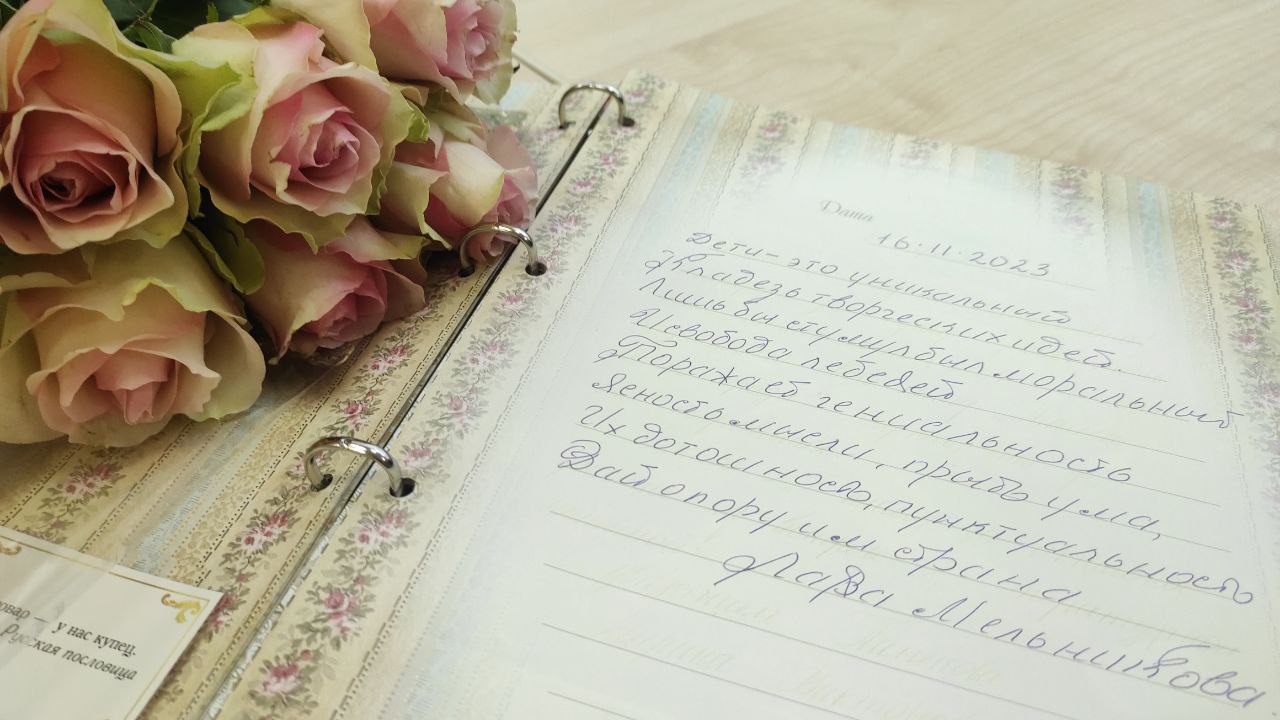 Дата 16.11.2023
Дети – это уникальный
Кладезь творческих идей.
Лишь бы стимул был моральный
И свобода лебедей
Поражает гениальность
Ясность мысли, прыть ума,
Их дотошность, пунктуальность
Дай опору им страна
Лариса Мельникова
овар — у нас купец.
Русская пословица